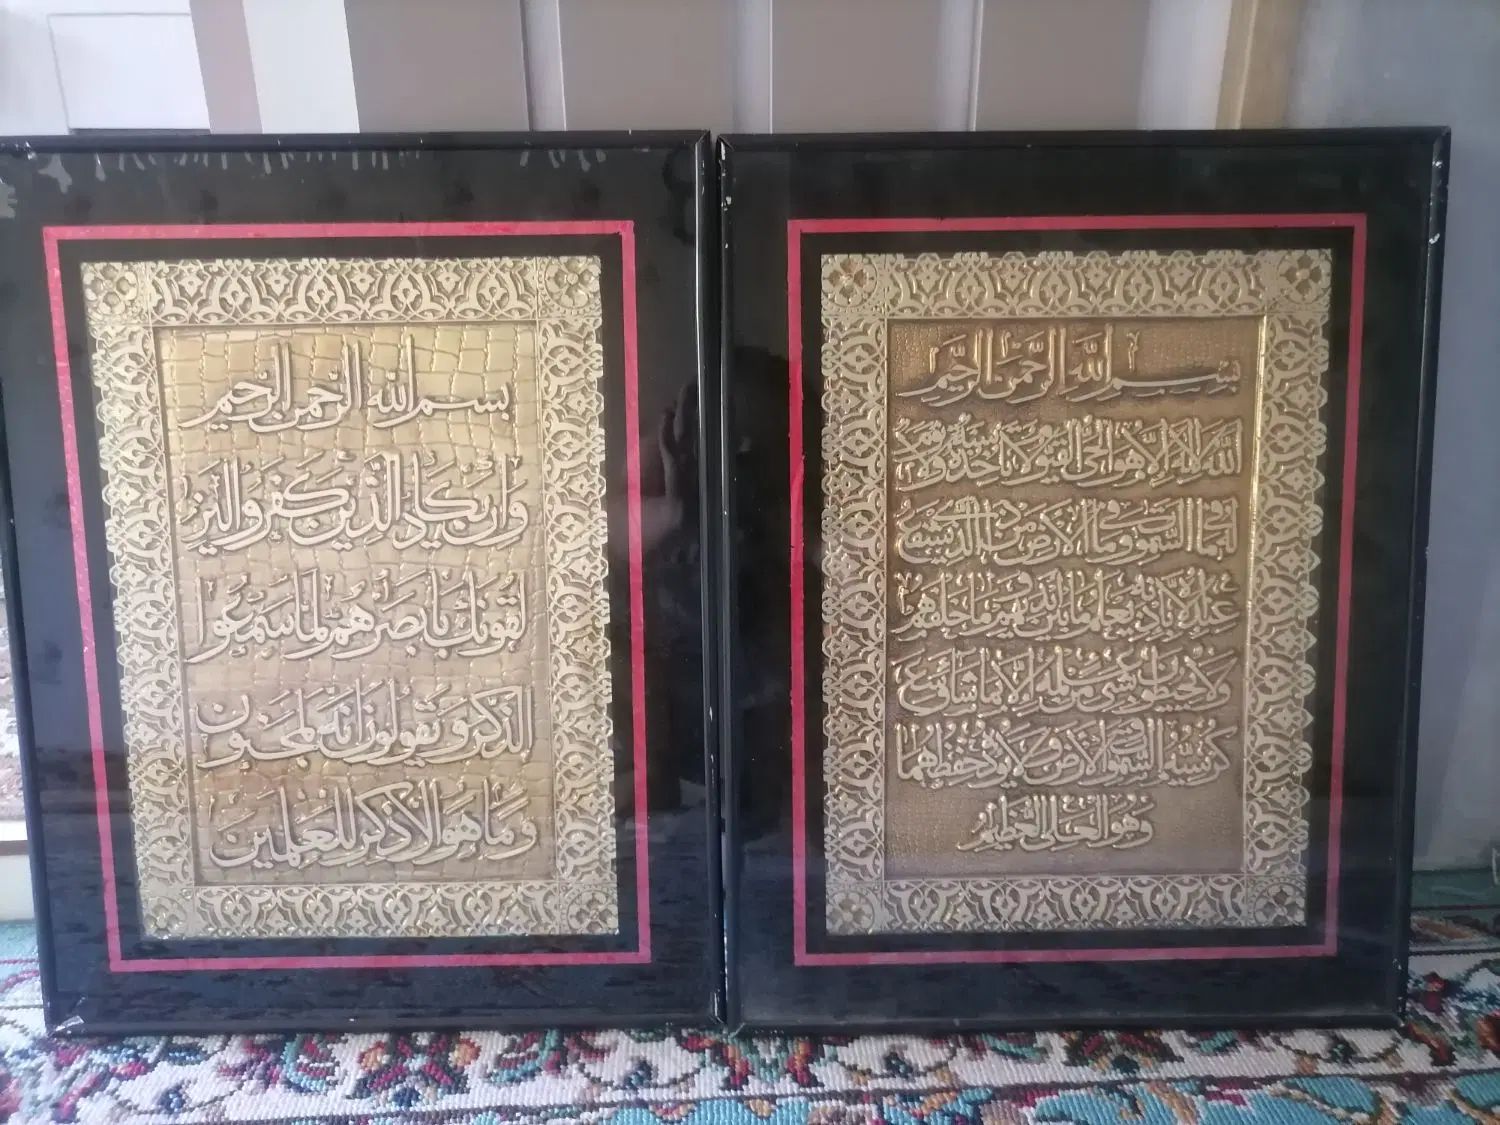 بسم الله الرحمن الرحیم
وان یکاد الذین کفروا لیز
لقونک بابصرهم لما سمعوا
الذکر و یقولون انه لمجنون
و ما هو الا ذکر للعلمین
بِسْمِ اللَّهِ الرَّحْمنِ الرَّحِیمِ
الله لا اله الا هو الحی القیوم لا تأخذه سنة و لا نوم له
ما فی السموت و ما فی الارض من ذا الذی یشفع
عنده الا باذنه یعلم ما بین ایدیهم و ما خلفهم
و لا یحیطون بشیء من علمه الا بما شاء وسع
کرسیه السموت و الارض و لا یؤده حفظهما
و هو العلی العظیم